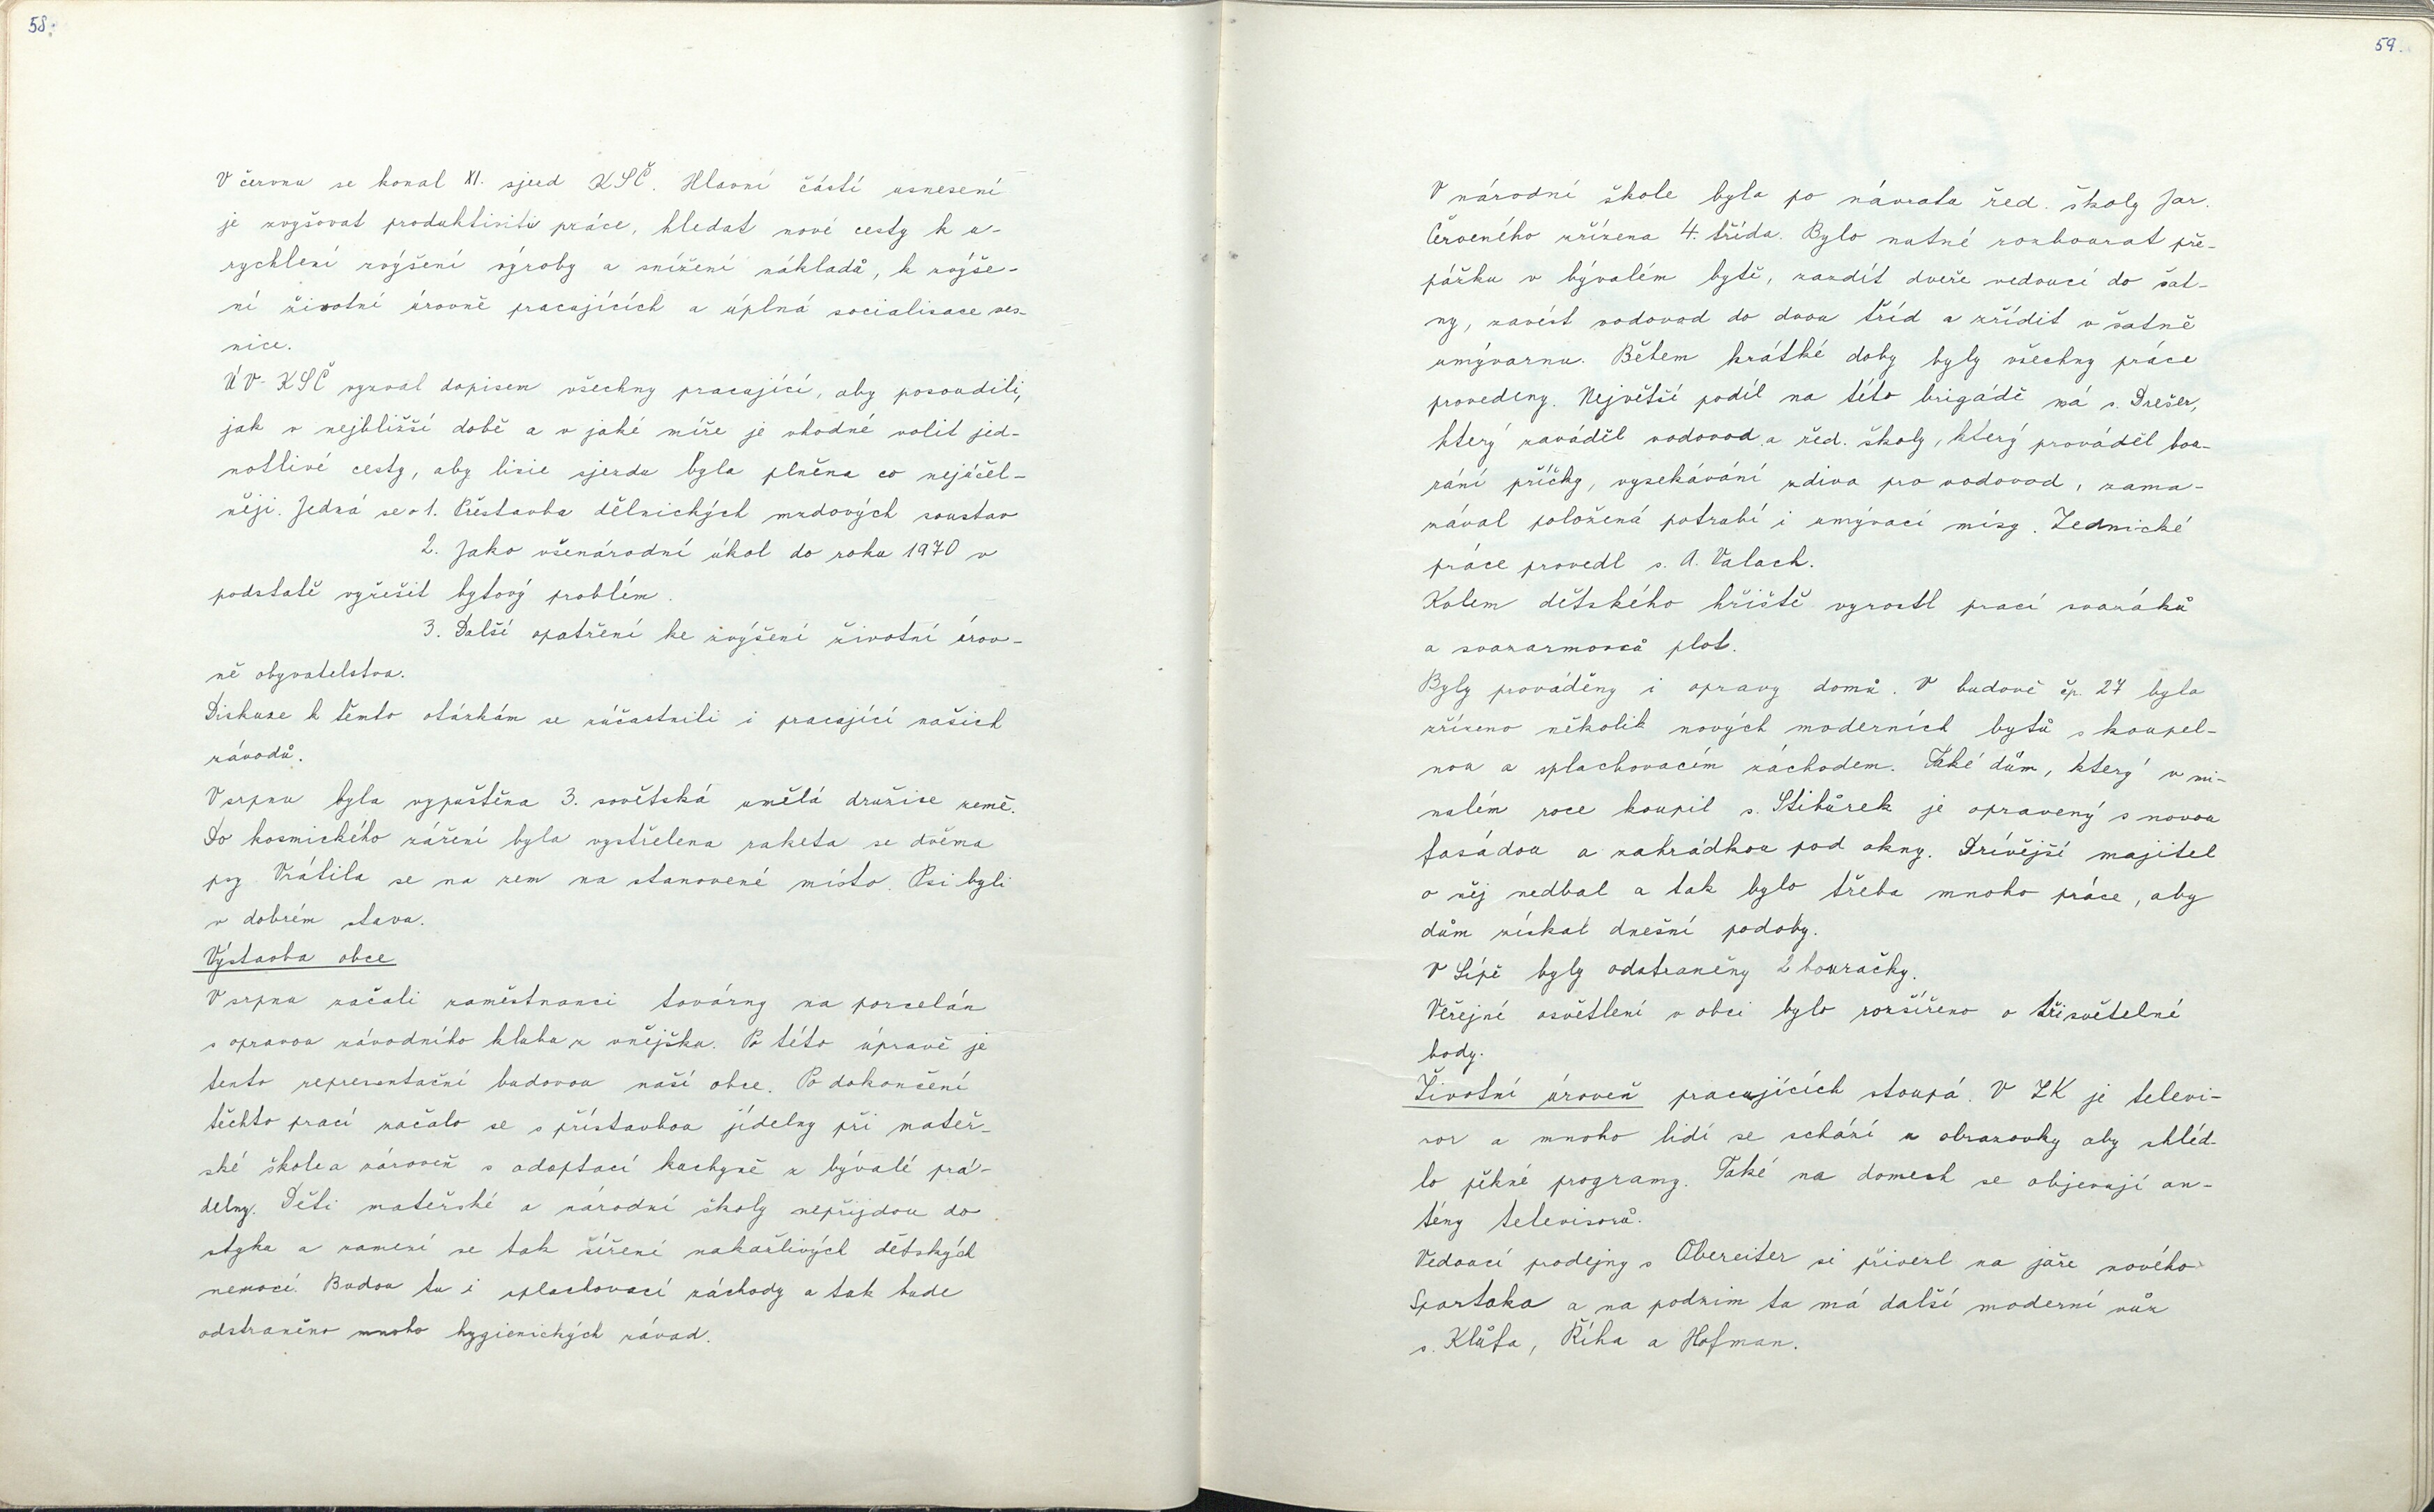 58.
V červnu se konal XI. sjezd KSČ. Hlavní částí usnesení
je zvyšovat produktivitu práce, hledat nové cesty k u-
rychlení zvýšení výroby a snížení nákladů, k zvýše-
ní životní úrovně pracujících a úplná socialisace ves-
nice.
ÚV-KSČ vyzval dopisem všechny pracující, aby posoudili,
jak v nejbližší době a v jaké míře je vhodné volit jed-
notlivé cesty, aby linie sjezdu byla plněna co nejúčel-
něji. Jedná se o 1. Přestavba dělnických mzdových soustav
2. Jako všenárodní úkol do roku 1970 v
podstatě vyřešit bytový problém.
3. Další opatření ke zvýšení životní úrov-
ně obyvatelstva.
Diskuze k těmto otázkám se zúčastnili i pracující našich
závodů.
V srpnu byla vypuštěna 3. sovětská umělá družice země.
Do kosmického záření byla vystřelena raketa se dvěma
psy. Vrátila se na zem na stanovené místo. Psi byli
v dobrém stavu.
Výstavba obce
V srpnu začali zaměstnanci továrny na porcelán
s opravou závodního klubu z vnějšku. Po této úpravě je
tento representační budovou naší obce. Po dokončení
těchto prací začalo se s přístavbou jídelny při mateř-
ské škole a zároveň s adaptací kuchyně z bývalé prá-
delny. Děti mateřské a národní školy nepřijdou do
styku a zamezí se tak šíření nakažlivých dětských
nemocí. Budou tu i splachovací záchody a tak bude
odstraněno mnoho hygienických závad.
59.
V národní škole byla po návratu řed. školy Jar.
Červeného zřízena 4. třída. Bylo nutné rozbourat pře-
pážku v bývalém bytě, zazdít dveře vedoucí do šat-
ny, zavést vodovod do dvou tříd a zřídit v šatně
umývárnu. Během krátké doby byly všechny práce
provedeny. Největší podíl na této brigádě má s. Drešer,
který zaváděl vodovod a řed. školy, který prováděl bou-
rání příčky, vysekávání zdiva pro vodovod, zama-
zával položená potrubí i umývací mísy. Zednické
práce provedl s. A. Valach.
Kolem dětského hřiště vyrostl prací svazáků
a svazarmovců plot.
Byly prováděny i opravy domů. V budově čp. 27 bylo
zřízeno několik nových moderních bytů s koupel-
nou a splachovacím záchodem. Také dům, který v mi-
nulém roce koupil s. Stibůrek je opravený s novou
fasádou a zahrádkou pod okny. Drívější majitel
o něj nedbal a tak bylo třeba mnoho práce, aby
dům získal dnešní podoby.
V Lípě byly odstraněny 2 bouračky.
Veřejné osvětlení v obci bylo rozšířeno o tři světelné
body.
Životní úroveň pracujících stoupá. V ZK je televi-
sor a mnoho lidí se schází u obrazovky aby shléd-
lo pěkné programy. Také na domech se objevují an-
tény televisorů.
Vedoucí prodejny s Obereiter si přivezl na jaře nového
Spartaka a na podzim tu má další moderní vůz
s. Klůfa, Říha a Hofman.